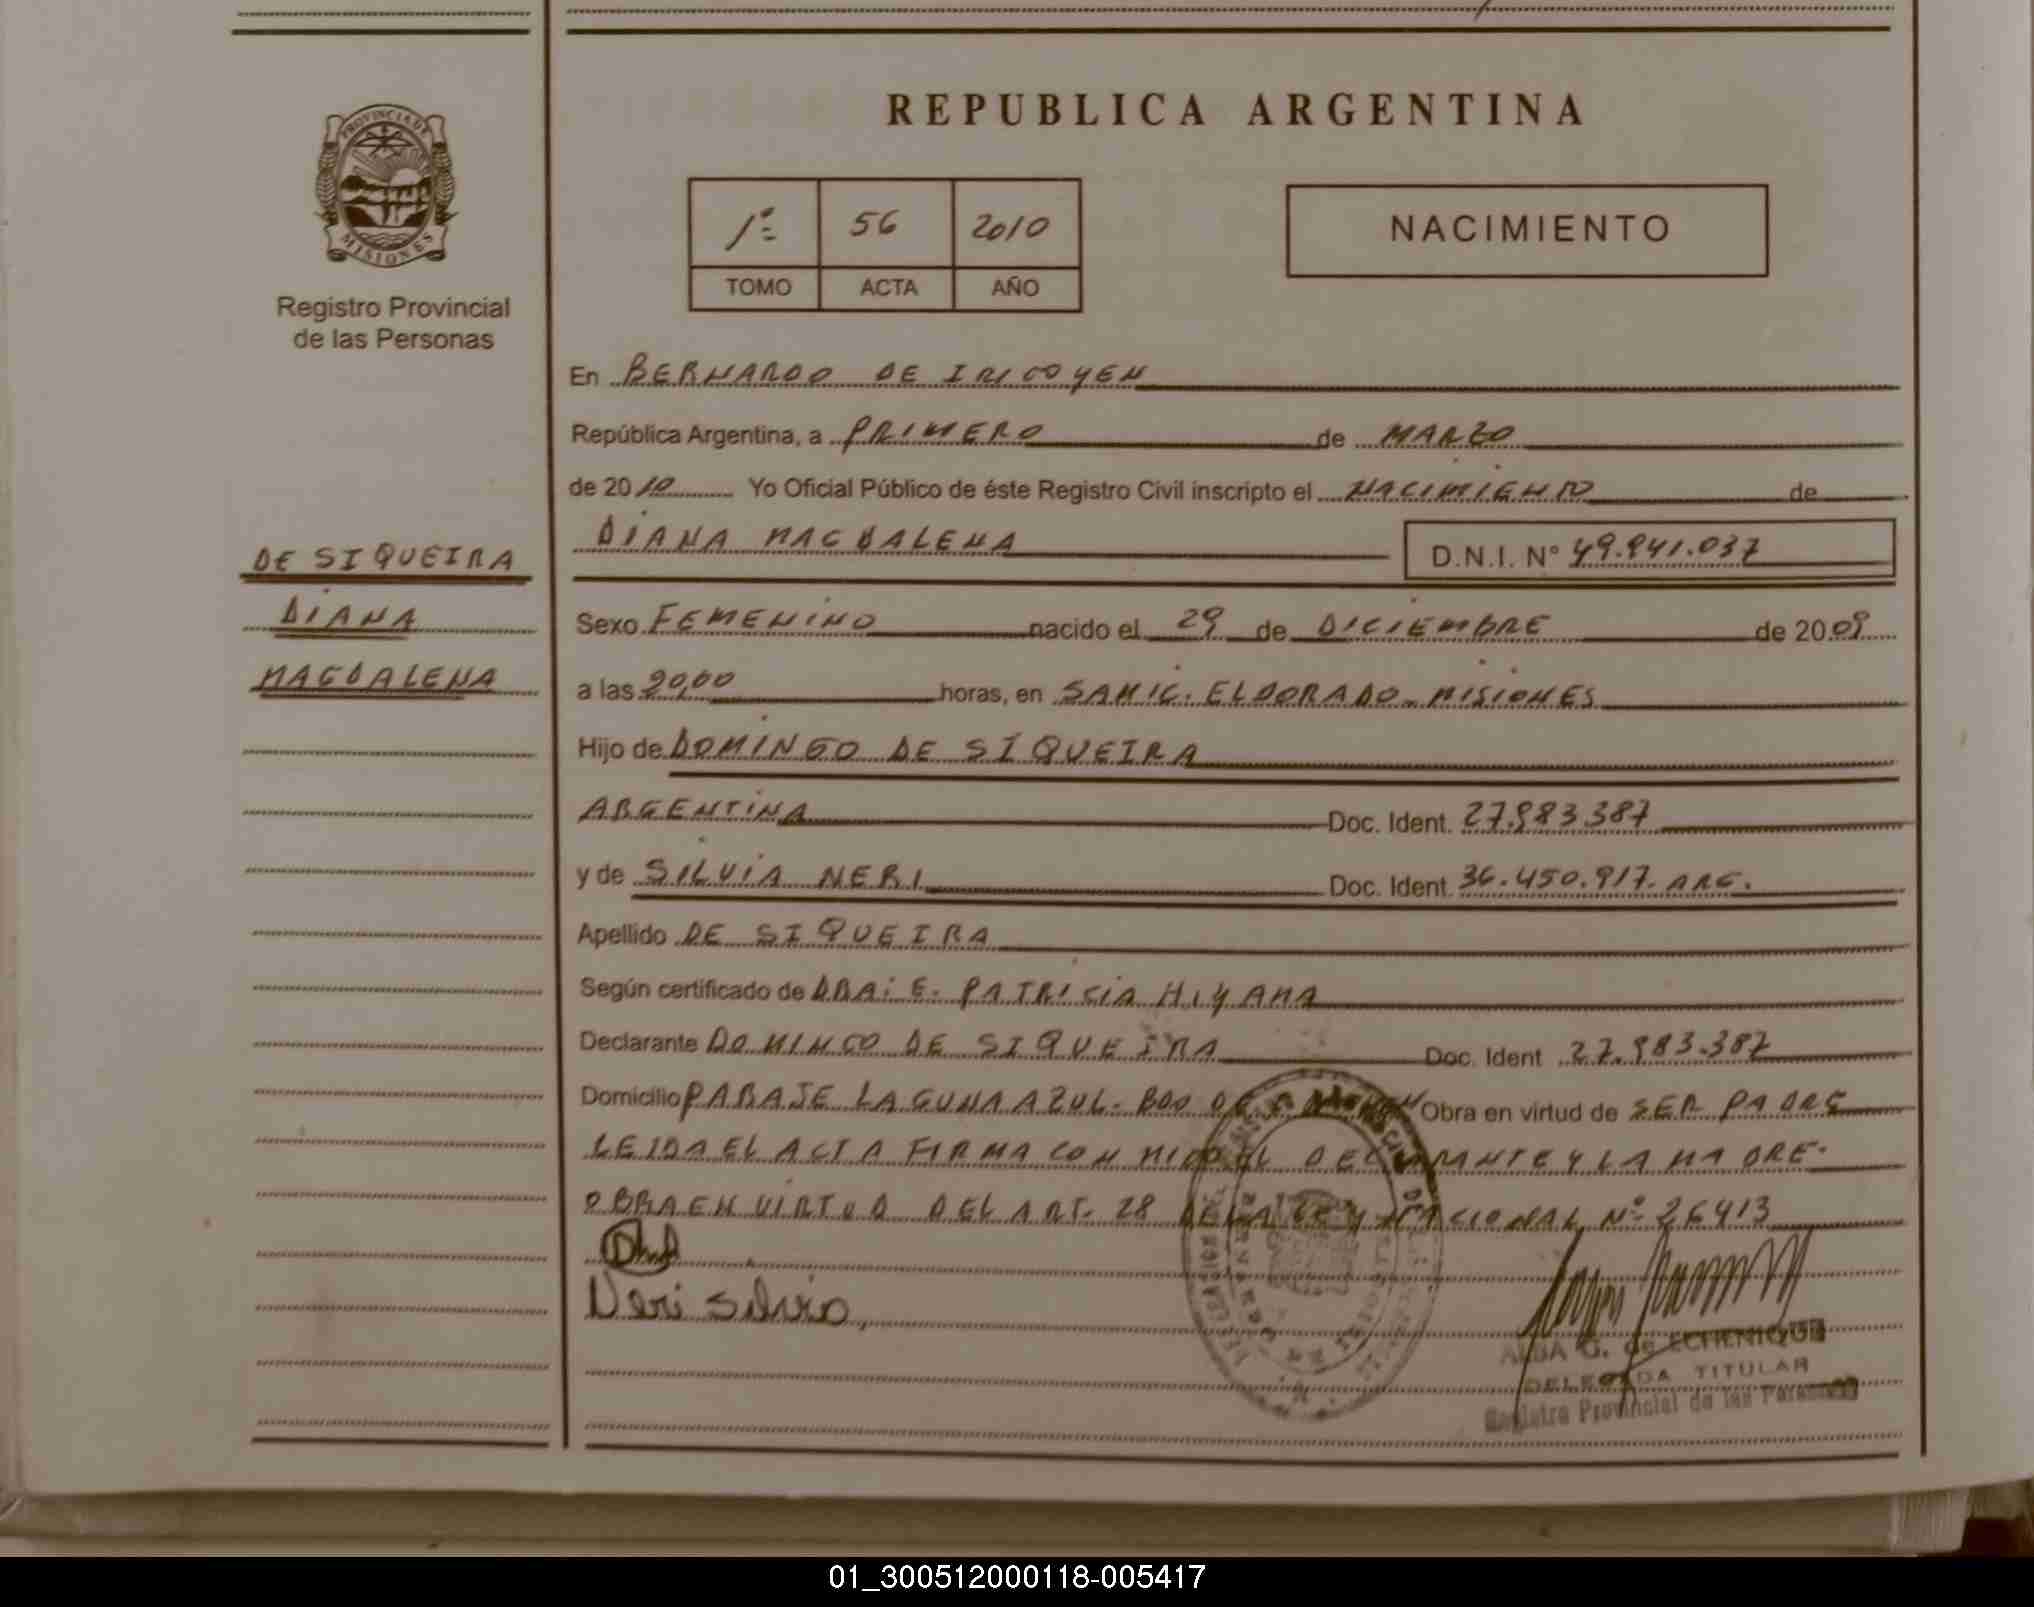 REPUBLICA ARGENTINA
PROVINCIA DE
MISIONES
Registro Provincial
de las Personas
1º 56 2010
TOMO ACTA AÑO
NACIMIENTO
En BERNARDO DE IRIGOYEN
República Argentina, a PRIMERO de MARZO
de 2010 Yo Oficial Público de éste Registro Civil inscripto el NACIMIENTO de
DIANA MAGDALENA D.N.I. Nº 49.941.037
DE SIQUEIRA
DIANA
MAGDALENA
Sexo FEMENINO nacido el 29 de DICIEMBRE de 2009
a las 20,00 horas, en SAMIC. ELDORADO - MISIONES
Hijo de DOMINGO DE SIQUEIRA
ARGENTINA Doc. Ident. 27.983.387
y de SILVIA NERI Doc. Ident. 36.450.917. ARG.
Apellido DE SIQUEIRA
Según certificado de DRA: E. PATRICIA
Declarante DOMINGO DE SIQUEIRA Doc. Ident 27.983.387
Domicilio PARAJE LAGUNA AZUL. BDO DE Obra en virtud de SER PADRE
LEIDA EL ACTA FIRMA CONMIGO EL DECLARANTE Y LA MADRE.
OBRA EN VIRTUD DEL ART. 28 DE LA LEY NACIONAL Nº 26413
Neri Silvia,
ALBA G. de ECHENIQUE
DELEGADA TITULAR
Registro Provincial de las Personas
01_300512000118-005417